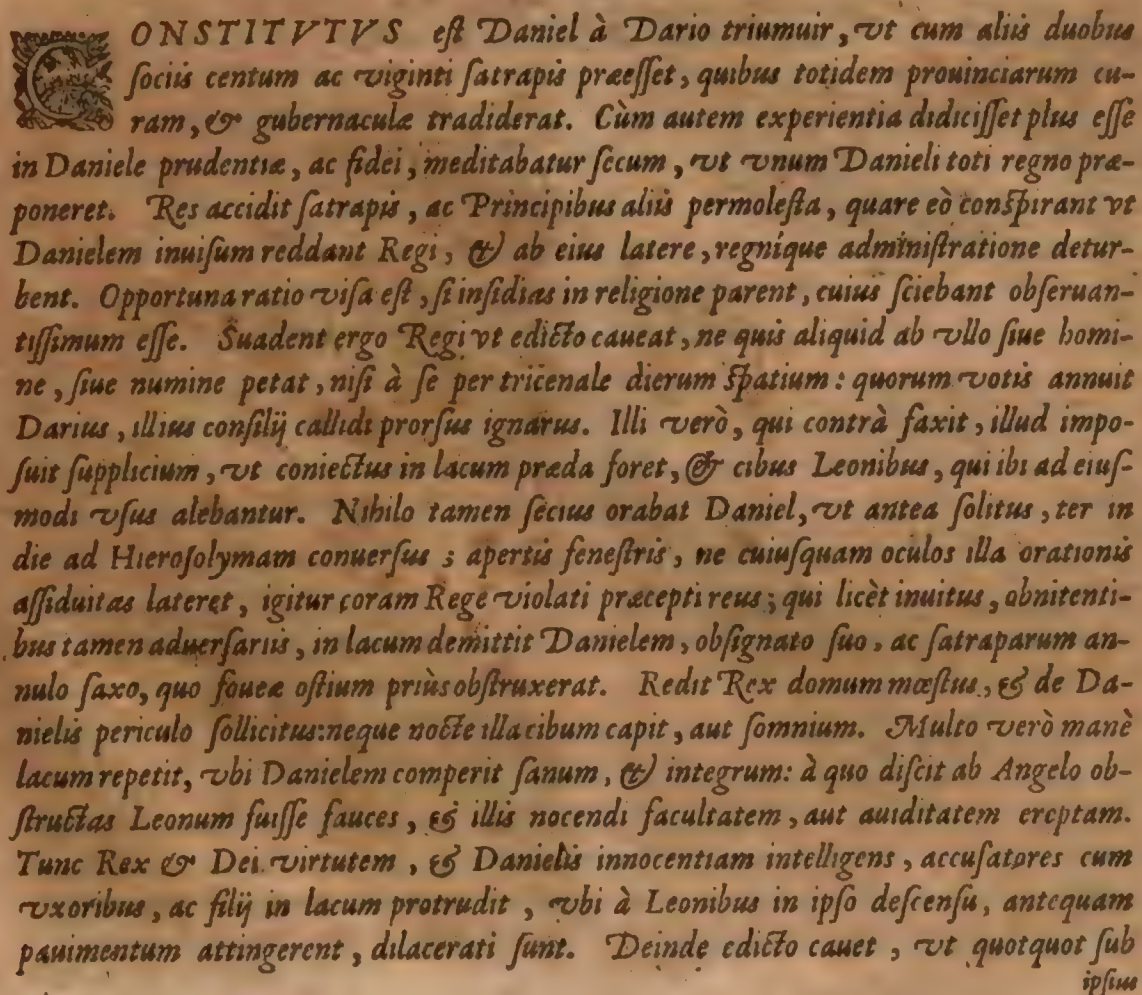 CONSTITVTVS est Daniel à Dario triumuir, vt cum aliis duobus
sociis centum ac viginti satrapis præesset, quibus totidem prouinciarum cu-
ram, & gubernacula tradiderat. Cùm autem experientia didicisset plus esse
in Daniele prudentiæ, ac fidei, meditabatur secum, vt vnum Danieli toti regno præ-
poneret. Res accidit satrapis, ac Principibus aliis permolesta, quare eò conspirant vt
Danielem inuisum reddant Regi, & ab eius latere, regnique administratione detur-
bent. Opportuna ratio visa est, si insidias in religione parent, cuius sciebant obseruan-
tissimum esse. Suadent ergo Regi vt edicto caueat, ne quis aliquid ab vllo siue homi-
ne, siue numine petat, nisi à se per tricenale dierum spatium: quorum votis annuit
Darius, illius consilij callidi prorsus ignarus. Illi verò, qui contrà faxit, illud impo-
suit supplicium, vt coniectus in lacum præda foret, & cibus Leonibus, qui ibi ad eius-
modi vsus alebantur. Nihilo tamen secius orabat Daniel, vt antea solitus, ter in
die ad Hierosolymam conuersus; apertis fenestris, ne cuiusquam oculos illa orationis
assiduitas lateret, igitur coram Rege violati præcepti reus; qui licèt inuitus, obnitenti-
bus tamen aduersariis, in lacum demittit Danielem, obsignato suo, ac satraparum an-
nulo saxo, quo foueæ ostium priùs obstruxerat. Redit Rex domum mæstus, & de Da-
nielis periculo sollicitus: neque nocte illa cibum capit, aut somnium. Multo verò manè
lacum repetit, vbi Danielem comperit sanum, & integrum: à quo discit ab Angelo ob-
structas Leonum fuisse fauces, & illis nocendi facultatem, aut auiditatem ereptam.
Tunc Rex & Dei virtutem, & Danielis innocentiam intelligens, accusatores cum
vxoribus, ac filij in lacum protrudit, vbi à Leonibus in ipso descensu, antequam
pauimentum attingerent, dilacerati sunt. Deinde edicto cauet, vt quotquot sub
ipsius